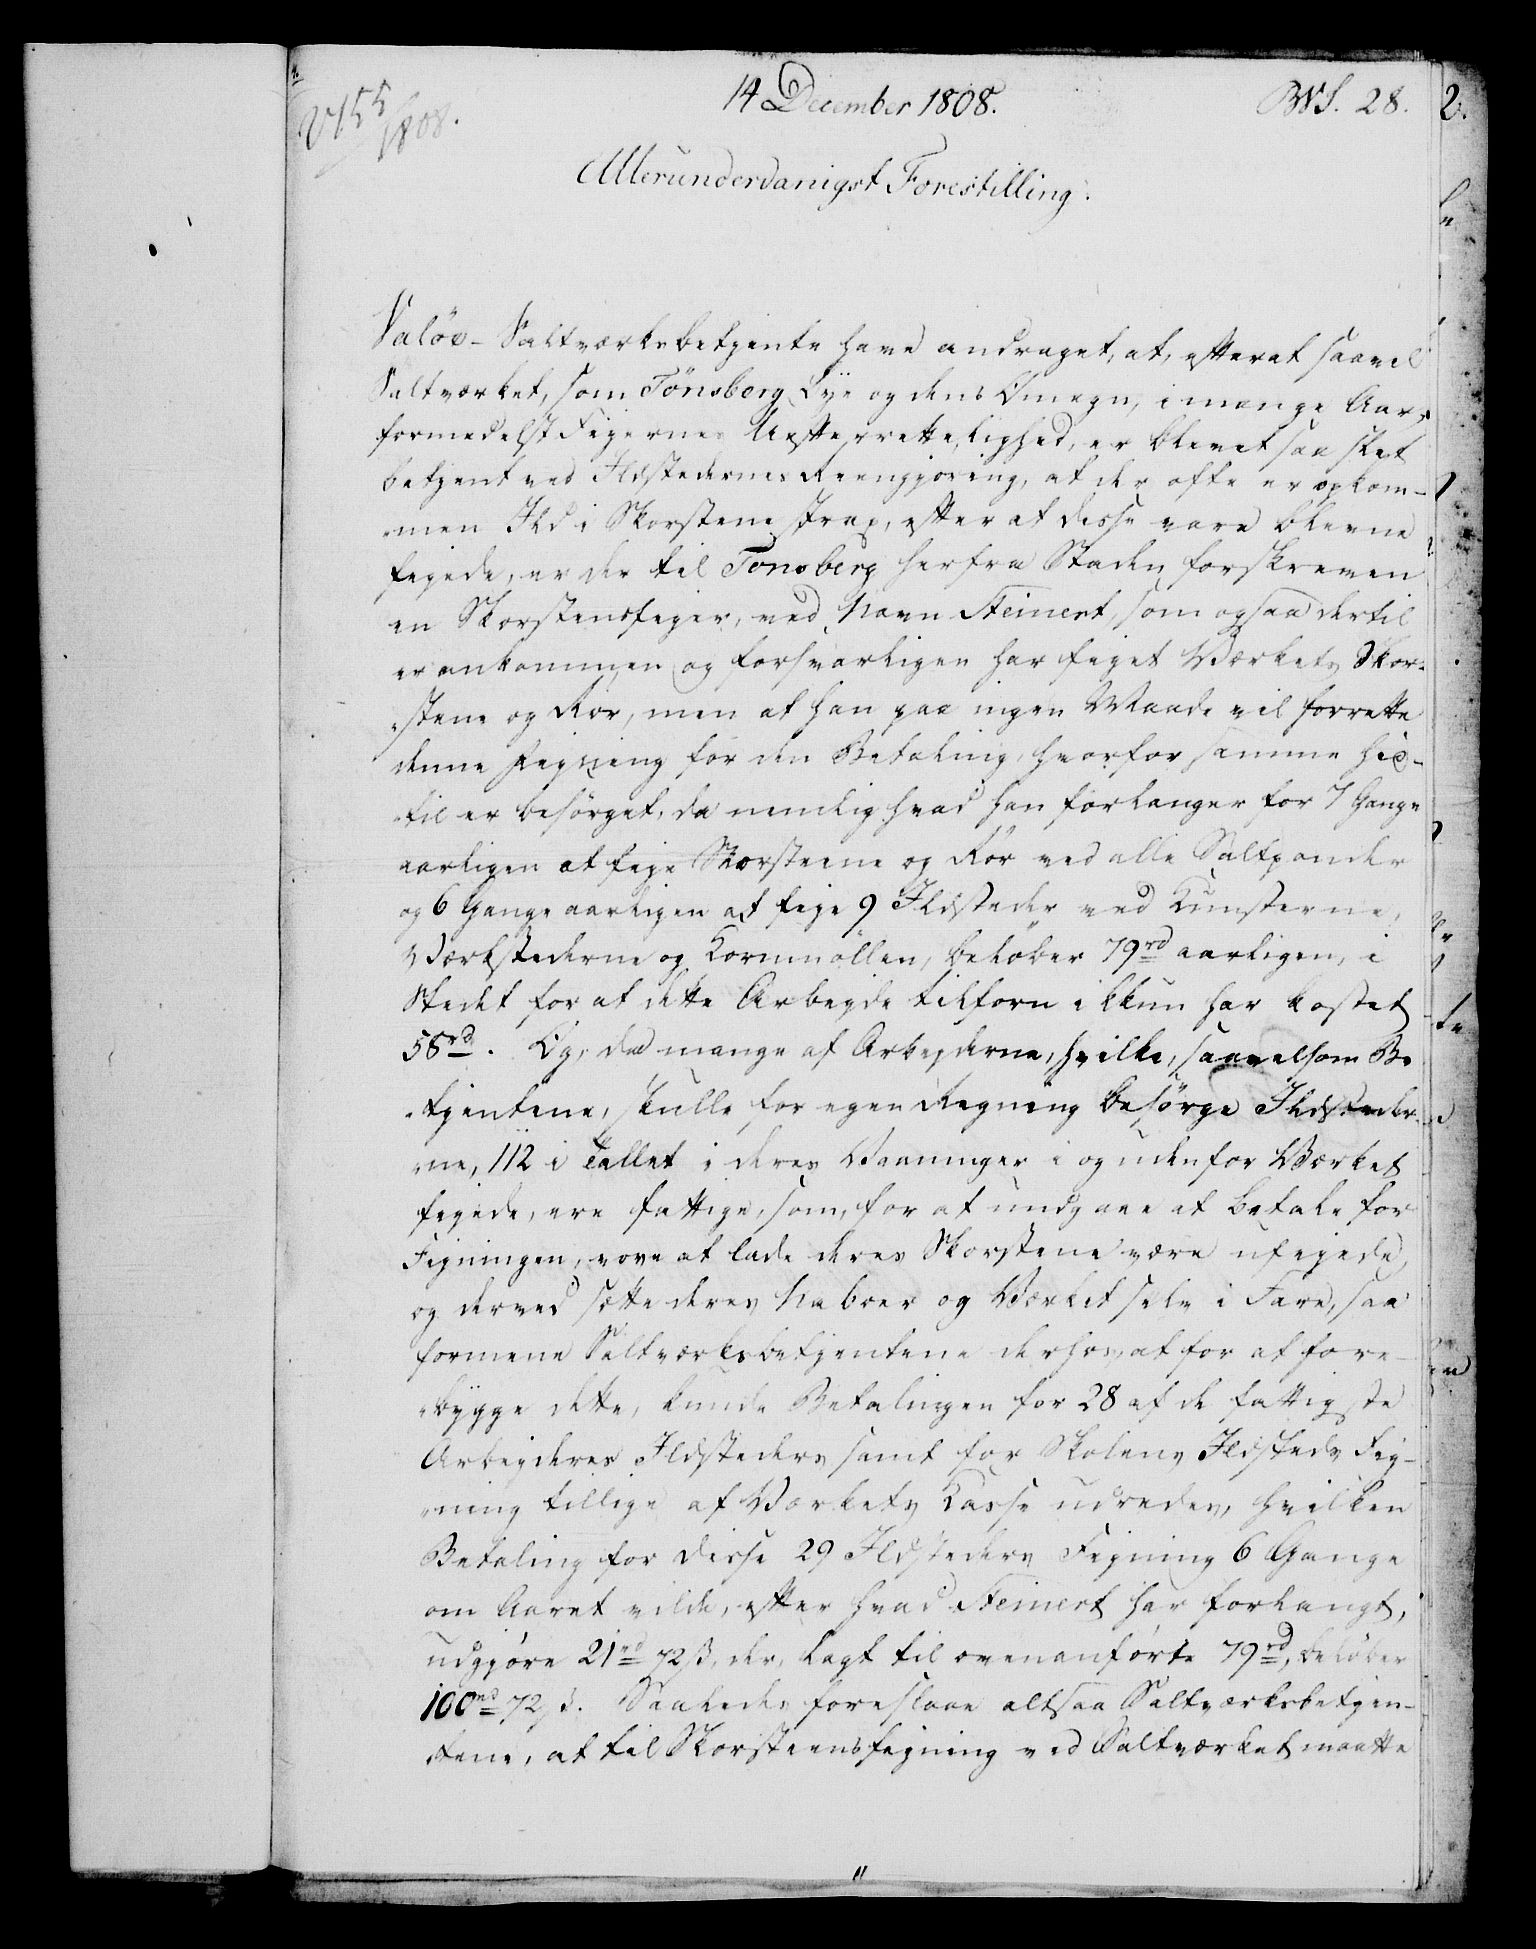 V155/1808.
14 December 1808.
BVS. 28.
Allerunderdanigst Forestilling.
Valöe-Saltværksbetjente have andraget, at, efterat saavel
Saltværket, som Tönsberg Bye og dens Omegn, i mange Aar,
formedelst Fejernes Uefterrettelighed, er blevet saa slet
betjent ved Ildstedernes Reengjøring, at der ofte er opkom-
men Ild i Skorstene strax, efter at disse vare blevne
fejede, er der til Tonsberg herfra Staden forskreven
en Skorstensfejer, ved Navn Steinert, som ogsaa dertil
er ankommen og forsvarligen har fejet Værkets Skor-
stene og Rør, men at han paa ingen Maade vil forrette
denne Fejning for den Betaling, hvorfor samme hid-
til er besörget, da nemlig hvad han forlanger for 7 Gange
aarligen at feje Skorsteene og Rör ved alle Saltpander
og 6 Gange aarligen at feje 9 Ildsteder ved Kunsterne,
Værkstederne og Kornmöllen, belöber 79 rd aarligen, i
Stedet for at dette Arbejde tilforn ikkun har kostet
58 rd. Og, da mange af Arbejderne, hvilke, saavelsom Be
tjentene, skulle for egen Regning besörge Ildsteder-
ne, 112 i Tallet i deres Vaaninger i og udenfor Værket
fejede, ere fattige, som, for at undgaae at betale for
Fejningen, vove at lade deres Skorstene være ufejede,
og derved sætte deres Naboer og Værket selv i Fare, saa
formene Saltværksbetjentene derhos, at for at fore-
bygge dette, kunde Betalingen for 28 af de fattigste
Arbejderes Ildsteders samt for Skolens Ildsteds Fej-
ning tillige af Værkets Casse udredes, hvilken
Betaling for disse 29 Ildsteders Fejning 6 Gange
om Aaret vilde, efter hvad Steinert har forlangt,
udgjøre 21 rd 72 ß, der, lagt til ovenanførte 79 rd, beløber
100 rd 72 ß. Saaledes foreslaae altsaa Saltværksbetjen-
tene, at til Skorsteensfejning ved Saltværket maatte